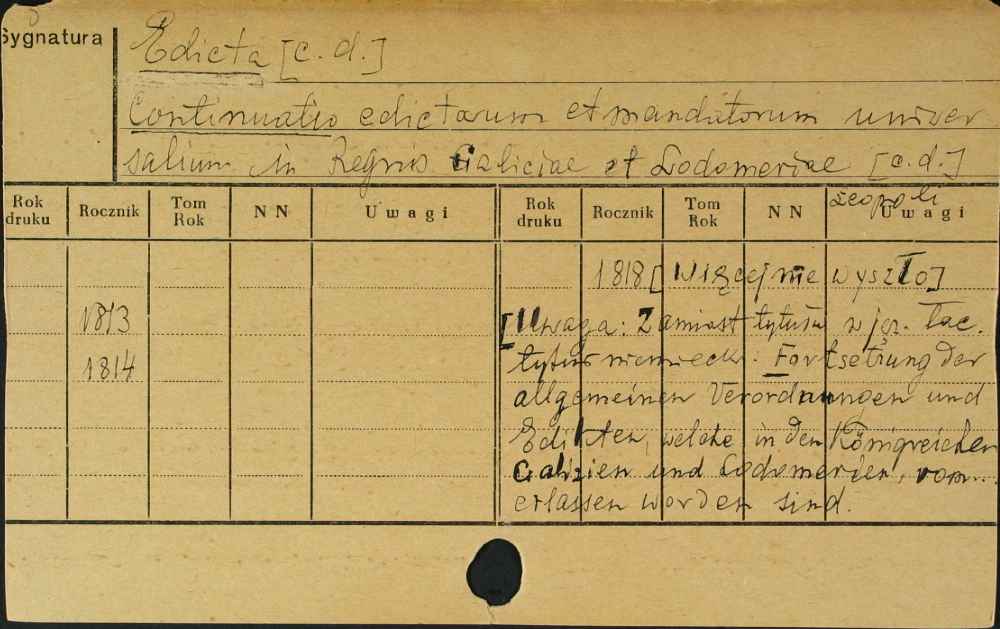 Sygnatura
Edicta [c. d.]
Continuatio edictorum et mandatorum univer
salium in Regnis Galiciae et Lodomeriae [c. d.]
Leopoli
Rok druku Rocznik Tom Rok N N Uwagi Rok druku Rocznik Tom Rok N N Uwagi
1818 [Więcej nie wyszło]
1813
[Uwaga: Zamiast tytułu w jęz. łac.
1814
tytuł niemiecki: Fortsetzung der
allgemeinen Verordnungen und
Edikten, welche in den Königreichen
Galizien und Lodomerien, vom...
erlassen worden sind.